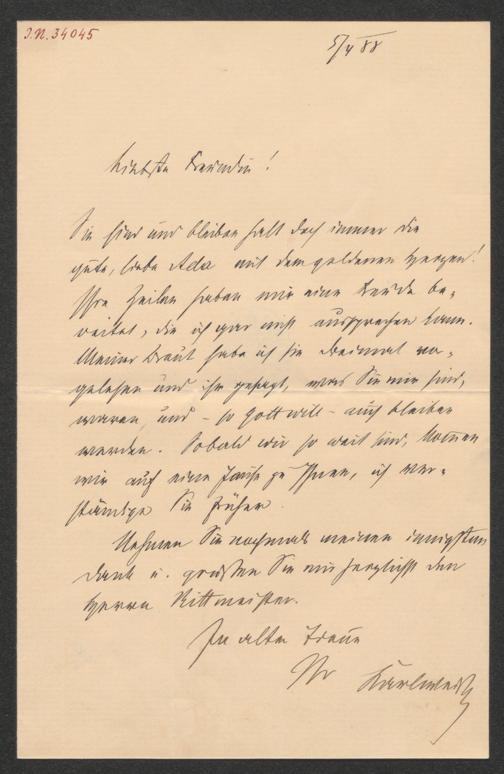 J.N. 34045
5/4 88
Liebste Freundin!
Sie sind und bleiben halt doch immer die
gute, liebe Ada mit dem goldenen Herzen!
Ihre Zeilen haben mir eine Freude be-
reitet, die ich gar nicht aussprechen kann.
Meiner Braut habe ich sie dreimal vor-
gelesen und ihr gesagt, was Sie mir sind,
waren und – so Gott will – auch bleiben
werden. Sobald wir so weit sind, kommen
wir auf eine Jause zu Ihnen, ich ver-
ständige Sie früher.
Nehmen Sie nochmals meinen innigsten
Dank u. grüßen Sie mir herzlichst den
Herrn Rittmeister.
In alter Treue
Ihr Karlweis